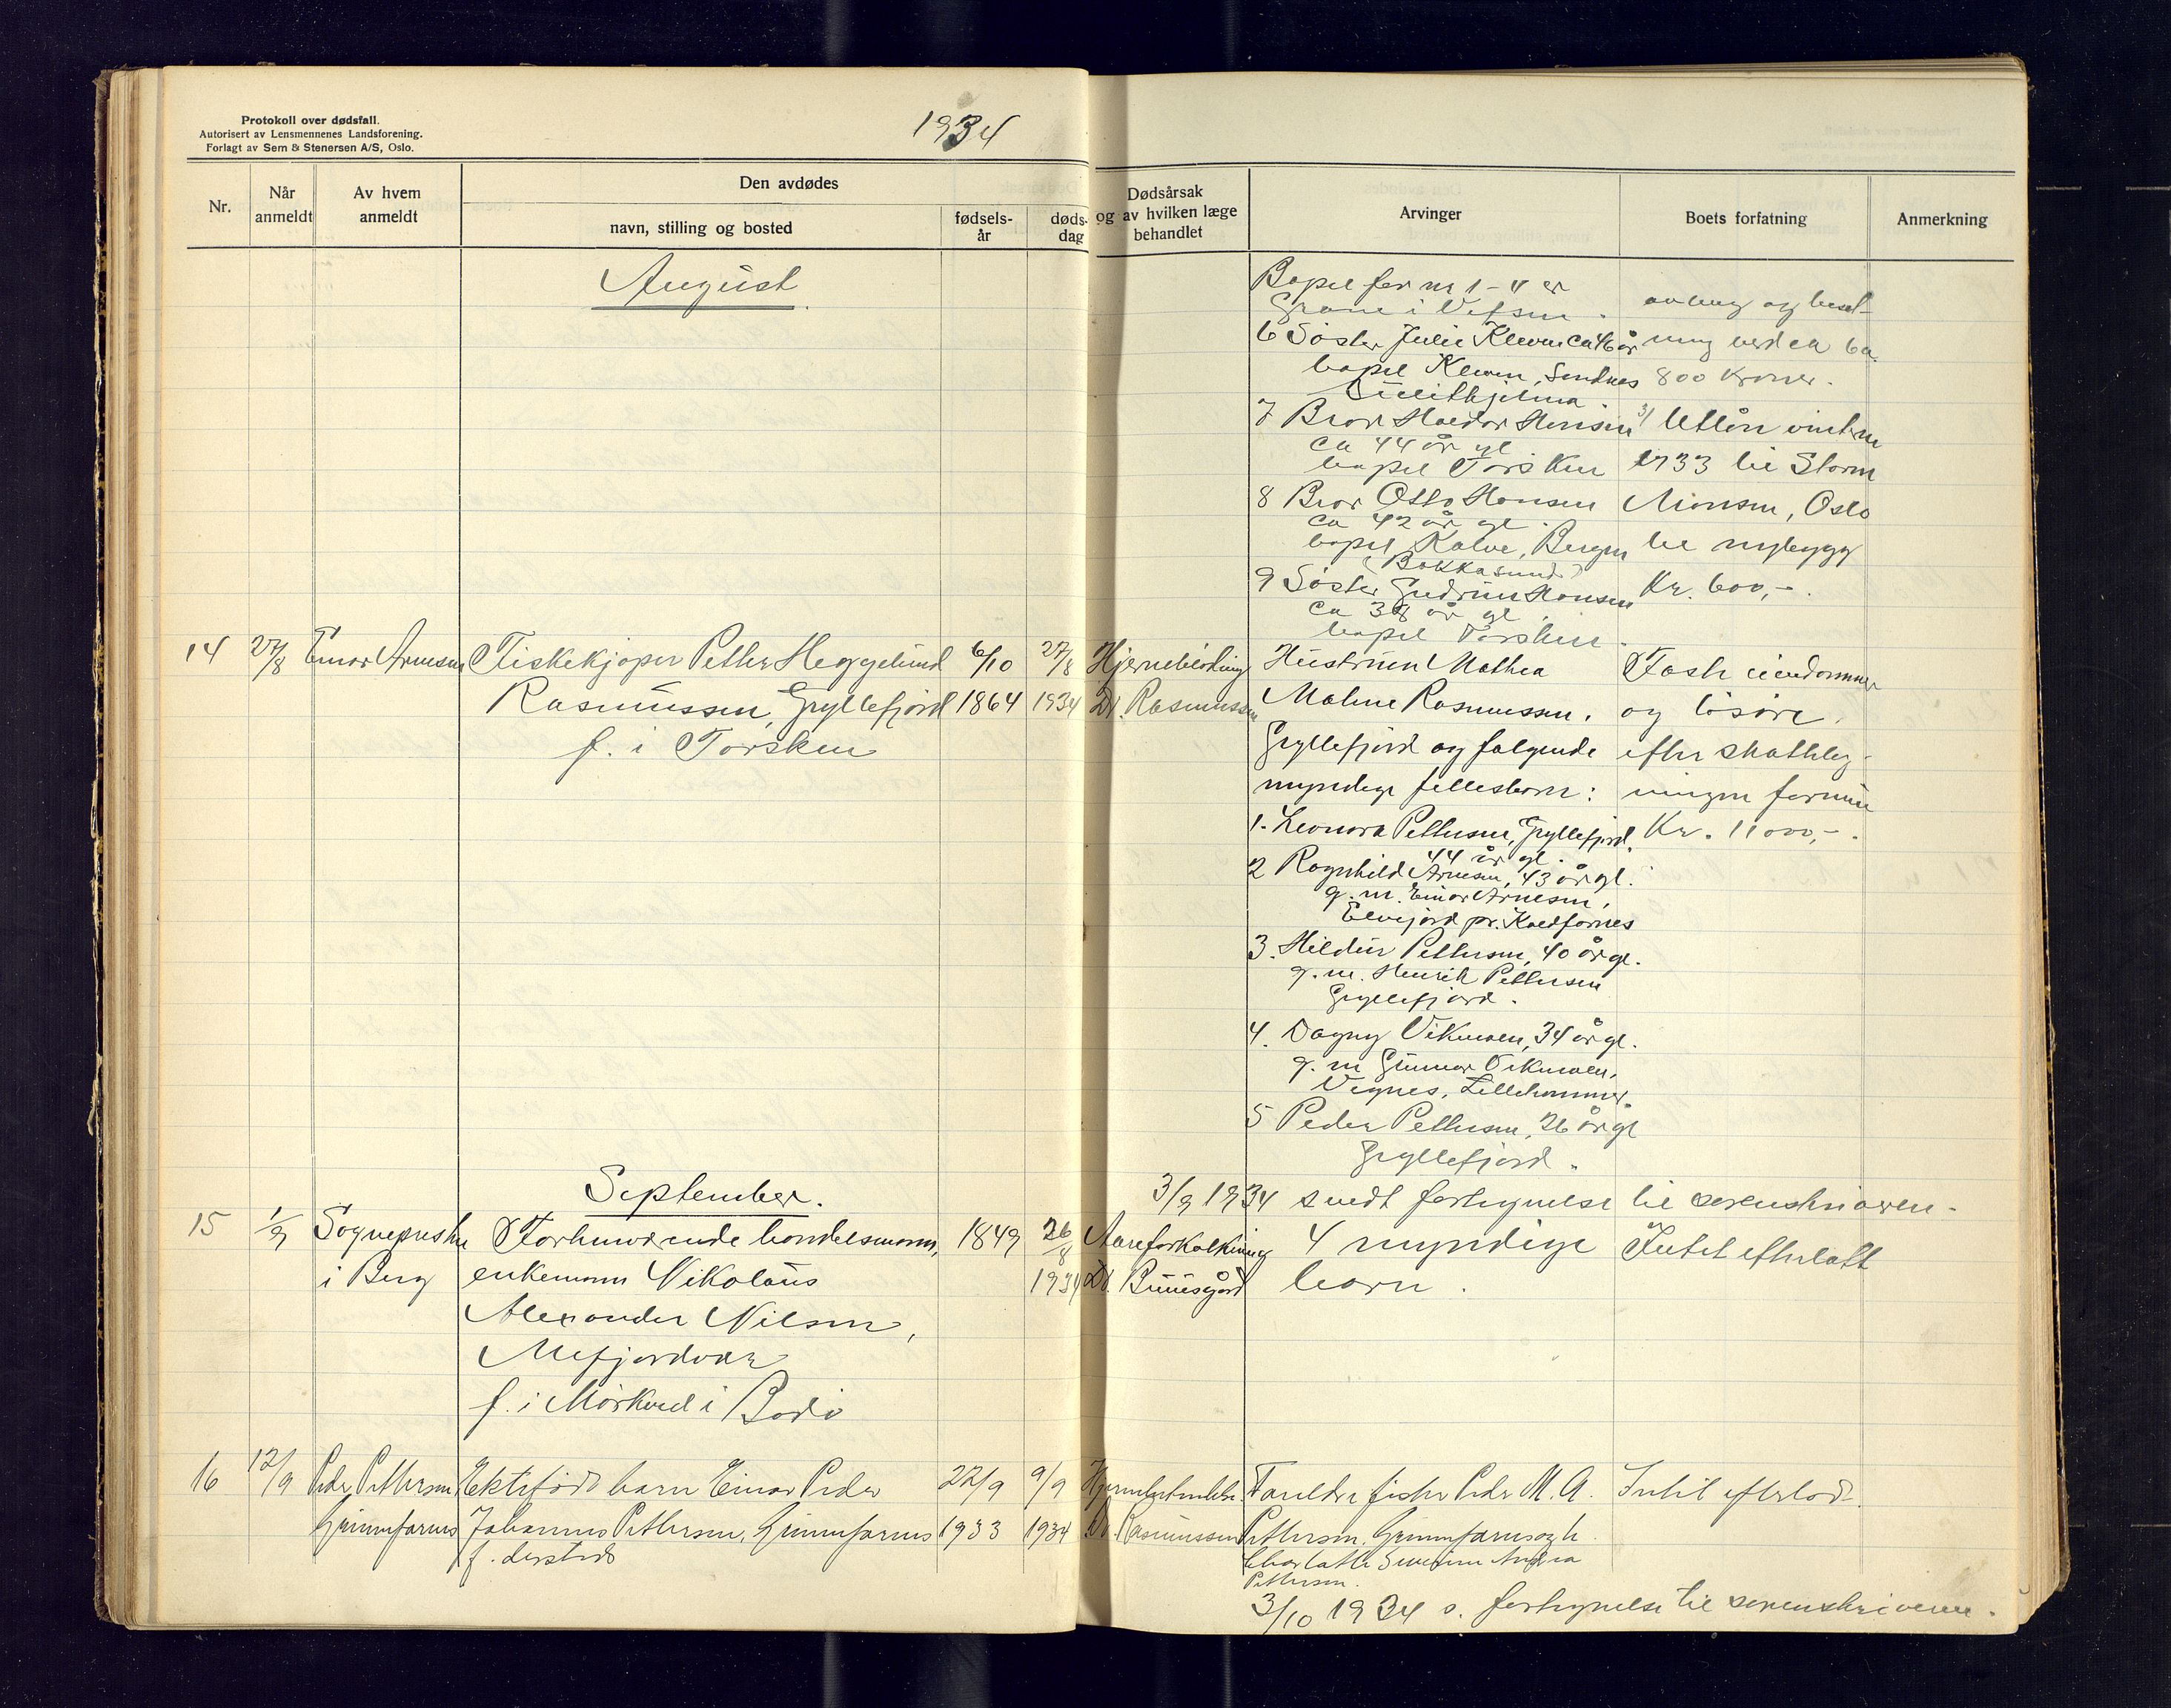 Protokoll over dødsfall.
Autorisert av Lensmennenes Landsforening.
Forlagt av Sem & Stenersen A/S, Oslo.
1934
Nr.
Når anmeldt
Av hvem anmeldt
Den avdødes
navn, stilling og bosted
fødsels-år
døds-dag
Dødsårsak og av hvilken læge behandlet
Arvinger
Boets forfatning
Anmerkning
August
Bopel for nr 1-4 er
Grane i Vefsen.
6 Søster Julie Kleven ca 46 år
bopel Kleven, Sandnes
Sulithjelma.
7 Bror Hældor Hansen
ca 44 år gl
bopel Torsken
8 Bror Otto Hansen
ca 42 år gl.
bopel Kalve, Bergen
(Bakkasund)
9 Søster Gudrun Hansen
ca 38 år gl.
bopel Torsken.
avling og besetning
800 kroner.
3/ Utlån vinteren
1933 til Storm
Monsen, Oslo
til nybygg
Kr. 600,-.
14
27/8
Einar Arnesen
Fiskekjøper Petter Heggelund
Rasmussen, Gryllefjord
f. i Torsken
6/10
1864
27/8
1934
Hjerneblødning
Dr. Rasmussen
Hustruen Mathea
Maline Rasmussen,
Gryllefjord og følgende
myndige fellesbarn:
1. Leonora Pettersen, Gryllefjord,
44 år gl.
2 Ragnhild Arnesen, 43 år gl.
g. m. Einar Arnesen,
Elvejord pr. Kaldfarnes
3. Hildur Pettersen, 40 år gl.
g. m. Henrik Pettersen
Gryllefjord.
4. Dagny Vikmoen, 34 år gl.
g. m Gunnar Vikmoen,
Vignes, Lillehammer.
5 Peder Pettersen, 26 år gl
Gryllefjord.
Faste eiendommer
og løsøre.
efter skattelig-
ningen formue
Kr. 11000,-.
September.
3/9 1934 sendt fortegnelse til sorenskriveren.
15
1/9
Sognepresten
i Berg
Forhenværende handelsmann,
enkemann Nikolaus
Alexander Nilsen,
Mefjordvær
f. i Mørkved i Bodø
1849
26/8
1934
Aareforkalkning
Dr. Buuesgård
4 myndige
barn.
Intet efterlatt
16
12/9
Peder Pettersen
Grunnfarnes
Ektefødt barn Einar Peder
Johannes Pettersen, Grunnfarnes
f. dersteds
22/9
1933
9/9
1934
Dr. Rasmussen
Foreldre fisker Peder M. A.
Pettersen, Grunnfarnes og h.
Charlotte Severine Andrea
Pettersen.
Intet efterlod.
3/10 1934 s. fortegnelse til sorenskriveren.